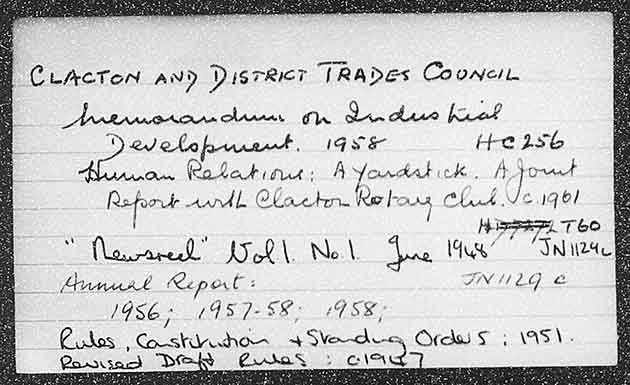 CLACTON AND DISTRICT TRADES COUNCIL
Memorandum on Industrial
Development. 1958 HC256
Human Relations: A Yardstick. A Joint
Report with Clacton Rotary Club. c.1961
LT60
"Newsreel" Vol 1. No 1. June 1948 JN1129c
Annual Report: JN1129 c
1956; 1957-58; 1958;
Rules, Constitution + Standing Orders: 1951.
Revised Draft Rules: c.1947